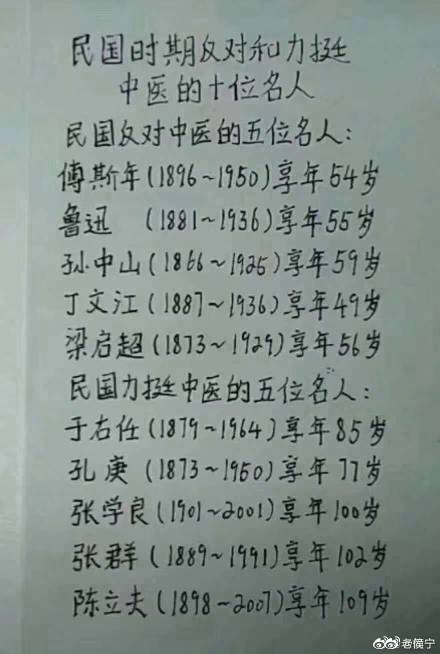 民国时期反对和力挺
中医的十位名人
民国反对中医的五位名人:
傅斯年(1896~1950)享年54岁
鲁迅 (1881~1936)享年55岁
孙中山(1866~1925)享年59岁
丁文江(1887~1936)享年49岁
梁启超(1873~1929)享年56岁
民国力挺中医的五位名人:
于右任(1879~1964)享年85岁
孔庚(1873~1950)享年77岁
张学良(1901~2001)享年100岁
张群(1889~1991)享年102岁
陈立夫(1898~2007)享年109岁
@老侯宁